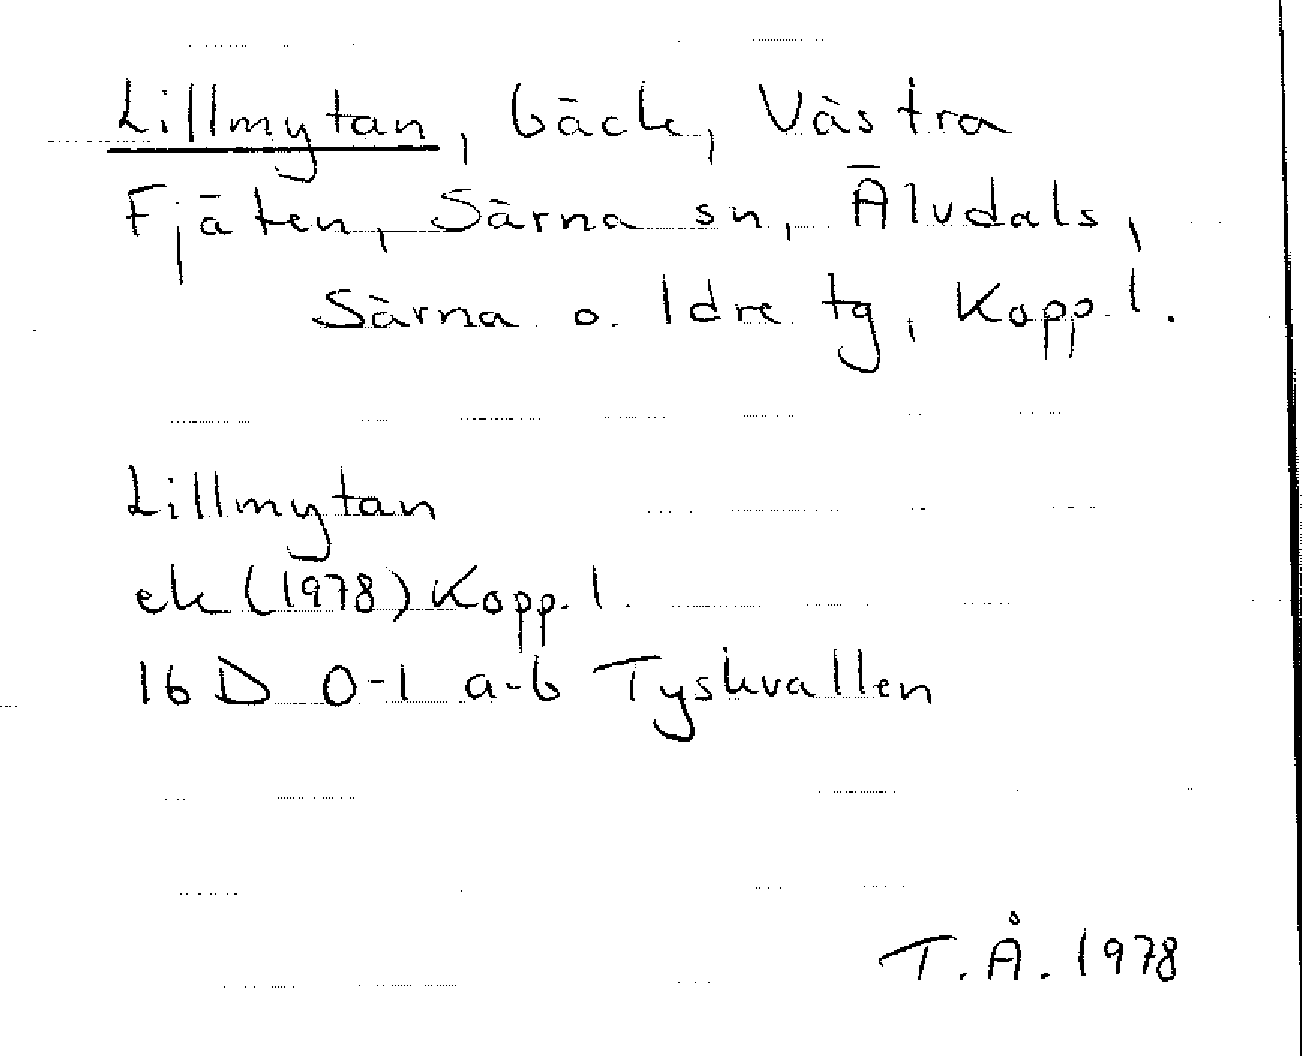 Lillmytan, bäck, Västra
Fjäten, Särna sn, Älvdals,
Särna o. Idre tg, Kopp. l.
Lillmytan
ek (1978) Kopp. l.
16 D 0-1 a-b Tyskvallen
T.Å. 1978